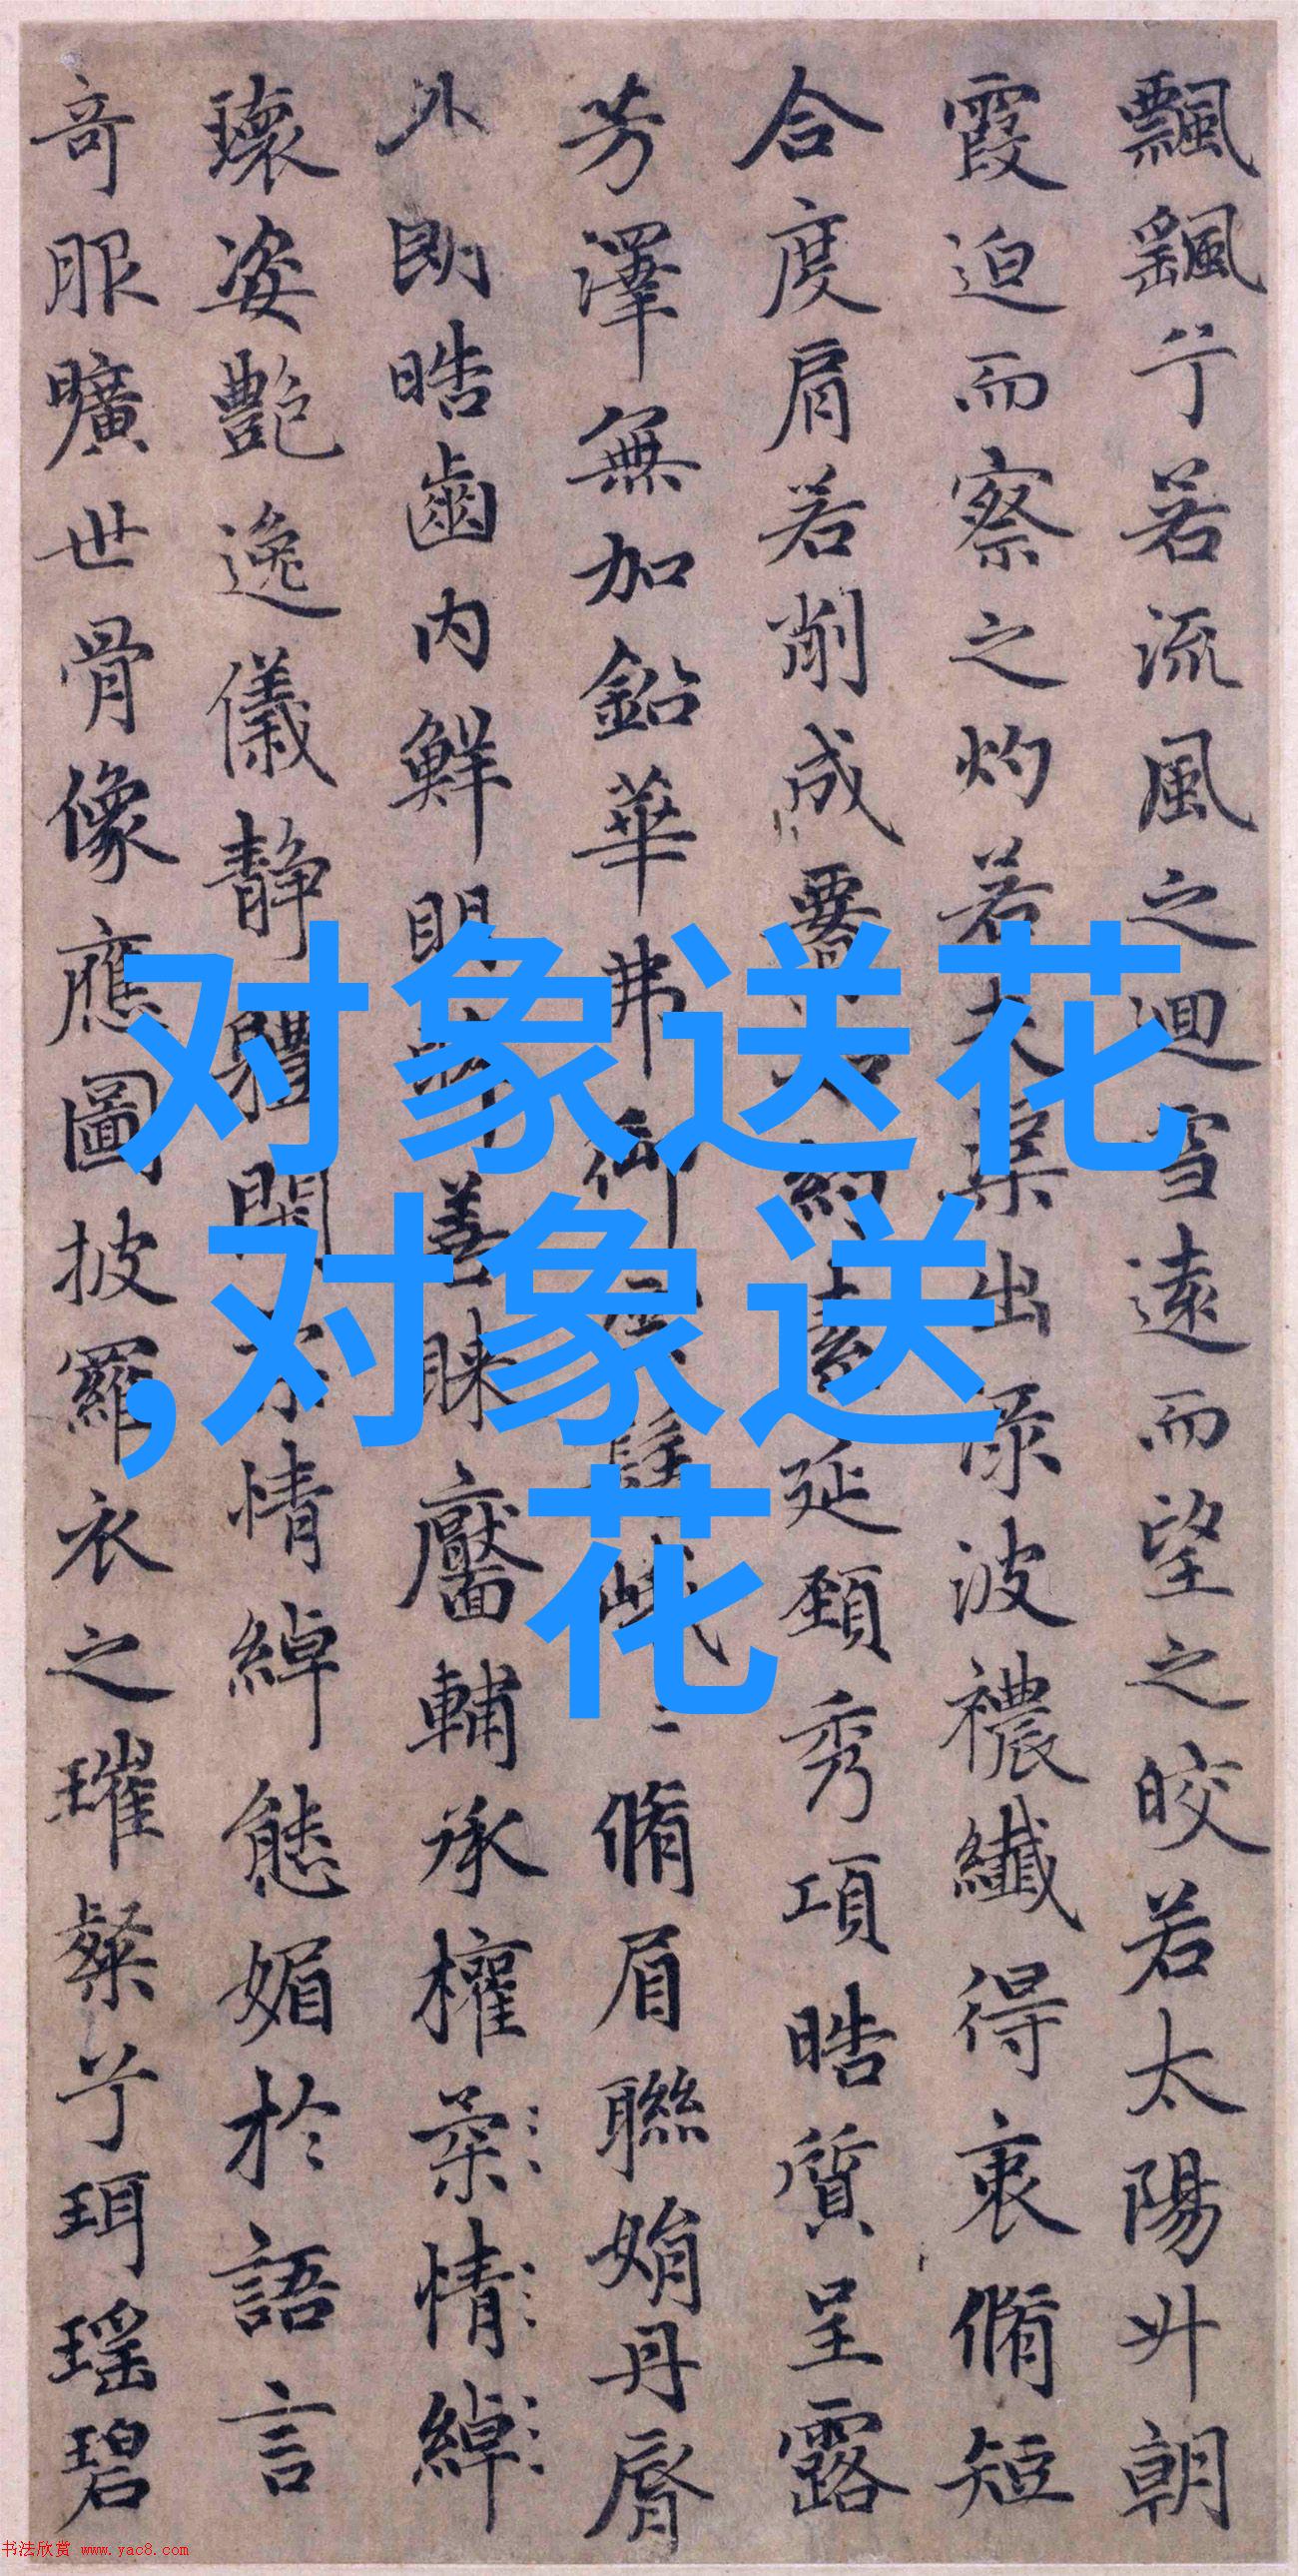 飄颻兮若流風之迴雪遠而望之皎若太陽升朝
霞迫而察之灼若夫蕖出淥波襛纖得衷脩短
合度肩若削成要若約素延頸秀項皓質呈露
芳澤無加鉛華弗御雲髻峨〻脩眉聯娟丹脣
外朗皓齒內鮮明眸善睞靨輔承權柔情綽
瓌姿艷逸儀靜體閑柔情綽態媚於語言
奇服曠世骨像應圖披羅衣之璀粲兮珥瑤碧
对象送花
,对象送
花
书法欣赏 www.yac8.com